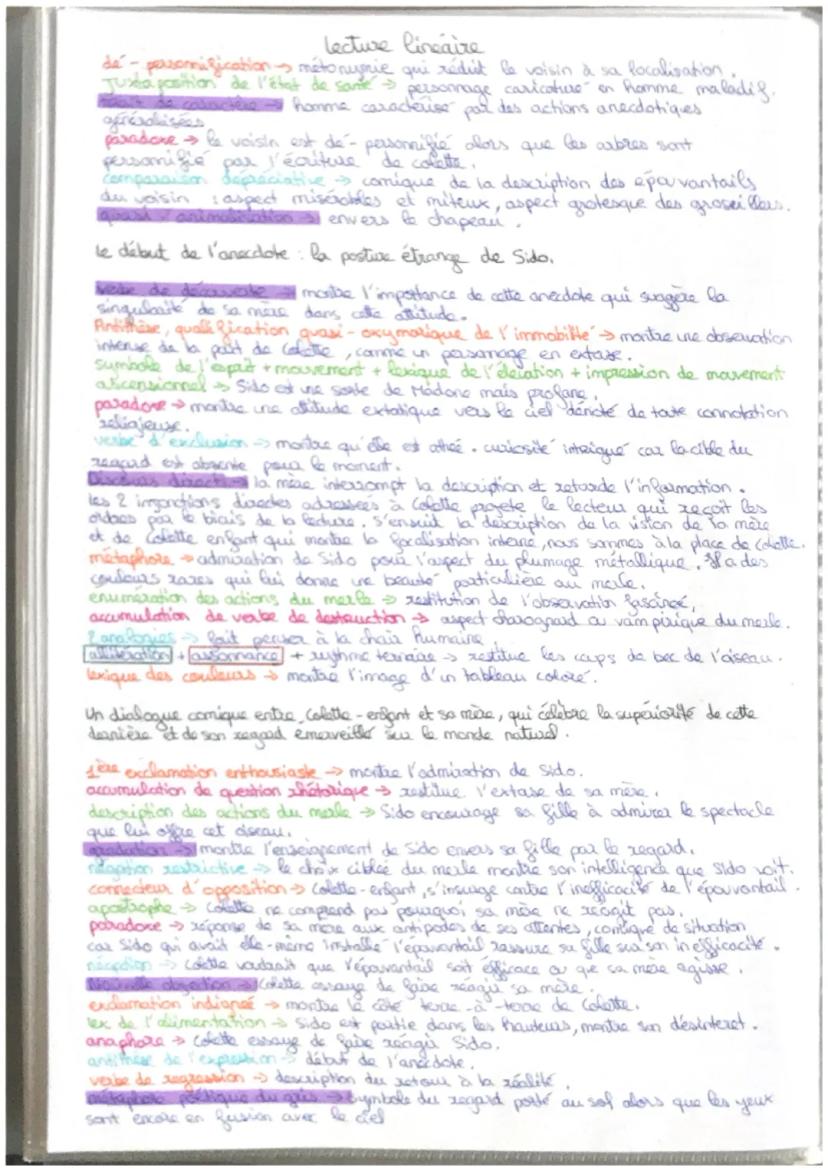 Lecture linéaire
dé-personnification → métonymie qui réduit le voisin à sa localisation.
Juxtaposition de l'état de santé → personnage caricaturé en homme maladif.
de caractère → homme caractérisé par des actions anecdotiques
généralisées
paradoxe → le voisin est dé-personnifié alors que les arbres sont
personnifié par l'écriture de colette.
comparaison dépréciative → comique de la description des épouvantails
du voisin : aspect misérables et miteux, aspect grotesque des groseilliers.
quasi animalisation → envers le chapeau.
le début de l'anecdote : la posture étrange de Sido.
verbe de découverte → montre l'importance de cette anecdote qui suggère la
singularité de sa mère dans cette attitude.
Antithèse, qualification quasi-oxymorique de l'immobilité → montre une observation
intense de la part de Colette, comme un personnage en extase.
symbole de l'esprit + mouvement + lexique de l'élévation + impression de mouvement
ascensionnel → Sido est une sorte de Madone mais profane.
paradoxe → montre une attitude extatique vers le ciel dénoté de toute connotation
religieuse.
verbe d'exclusion → montre qu'elle est athée. curiosité intrigué car la cible du
regard est absente pour le moment.
Discours direct → la mère interrompt la description et retarde l'information.
les 2 injonctions directes adressées à Colette projete le lecteur qui reçoit les
ordres par le biais de la lecture. S'ensuit la description de la vision de la mère
et de Colette enfant qui montre la focalisation interne, nous sommes à la place de Colette.
métaphore → admiration de Sido pour l'aspect du plumage métallique. Il a des
couleurs rares qui lui donne une beauté particulière au merle.
énumération des actions du merle → restitution de l'observation fascinée,
accumulation de verbe de destruction → aspect charognard ou vampirique du merle.
2 analogies → fait penser à la chair humaine
allitération + assonnance + rythme ternaire → restitue les coups de bec de l'oiseau.
lexique des couleurs → montre l'image d'un tableau coloré.
Un dialogue comique entre Colette-enfant et sa mère, qui célèbre la supériorité de cette
dernière et de son regard émerveillé sur le monde naturel.
1ère exclamation enthousiaste → montre l'admiration de Sido.
accumulation de question rhétorique → restitue l'extase de sa mère.
description des actions du merle → Sido encourage sa fille à admirer le spectacle
que lui offre cet oiseau.
gradation → montre l'enseignement de Sido envers sa fille par le regard.
négation restrictive → le choix ciblée du merle montre son intelligence que Sido voit.
connecteur d'opposition → Colette-enfant, s'insurge contre l'inefficacité de l'épouvantail.
apostrophe → Colette ne comprend pas pourquoi sa mère ne réagit pas.
paradoxe → réponse de sa mère aux antipodes de ses attentes, comique de situation
car Sido qui avait elle-même installé l'épouvantail rassure sa fille sur son inefficacité.
négation → Colette voudrait que l'épouvantail soit efficace ou que sa mère agisse.
Nouvelle objection → Colette essaye de faire réagir sa mère.
exclamation indignée → montre le côté terre-à-terre de Colette.
lex de l'alimentation → Sido est partie dans les hauteurs, montre son désintéret.
anaphore → Colette essaye de faire réagir Sido.
antithèse de l'expression → début de l'anecdote.
verbe de regression → description du retour à la réalité.
métaphore poétique du gris → symbole du regard porté au sol alors que les yeux
sont encore en fusion avec le ciel